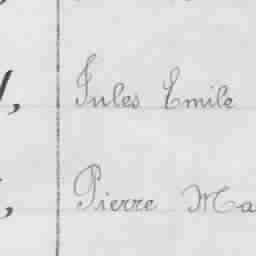 Jules Emile
Pierre Ma